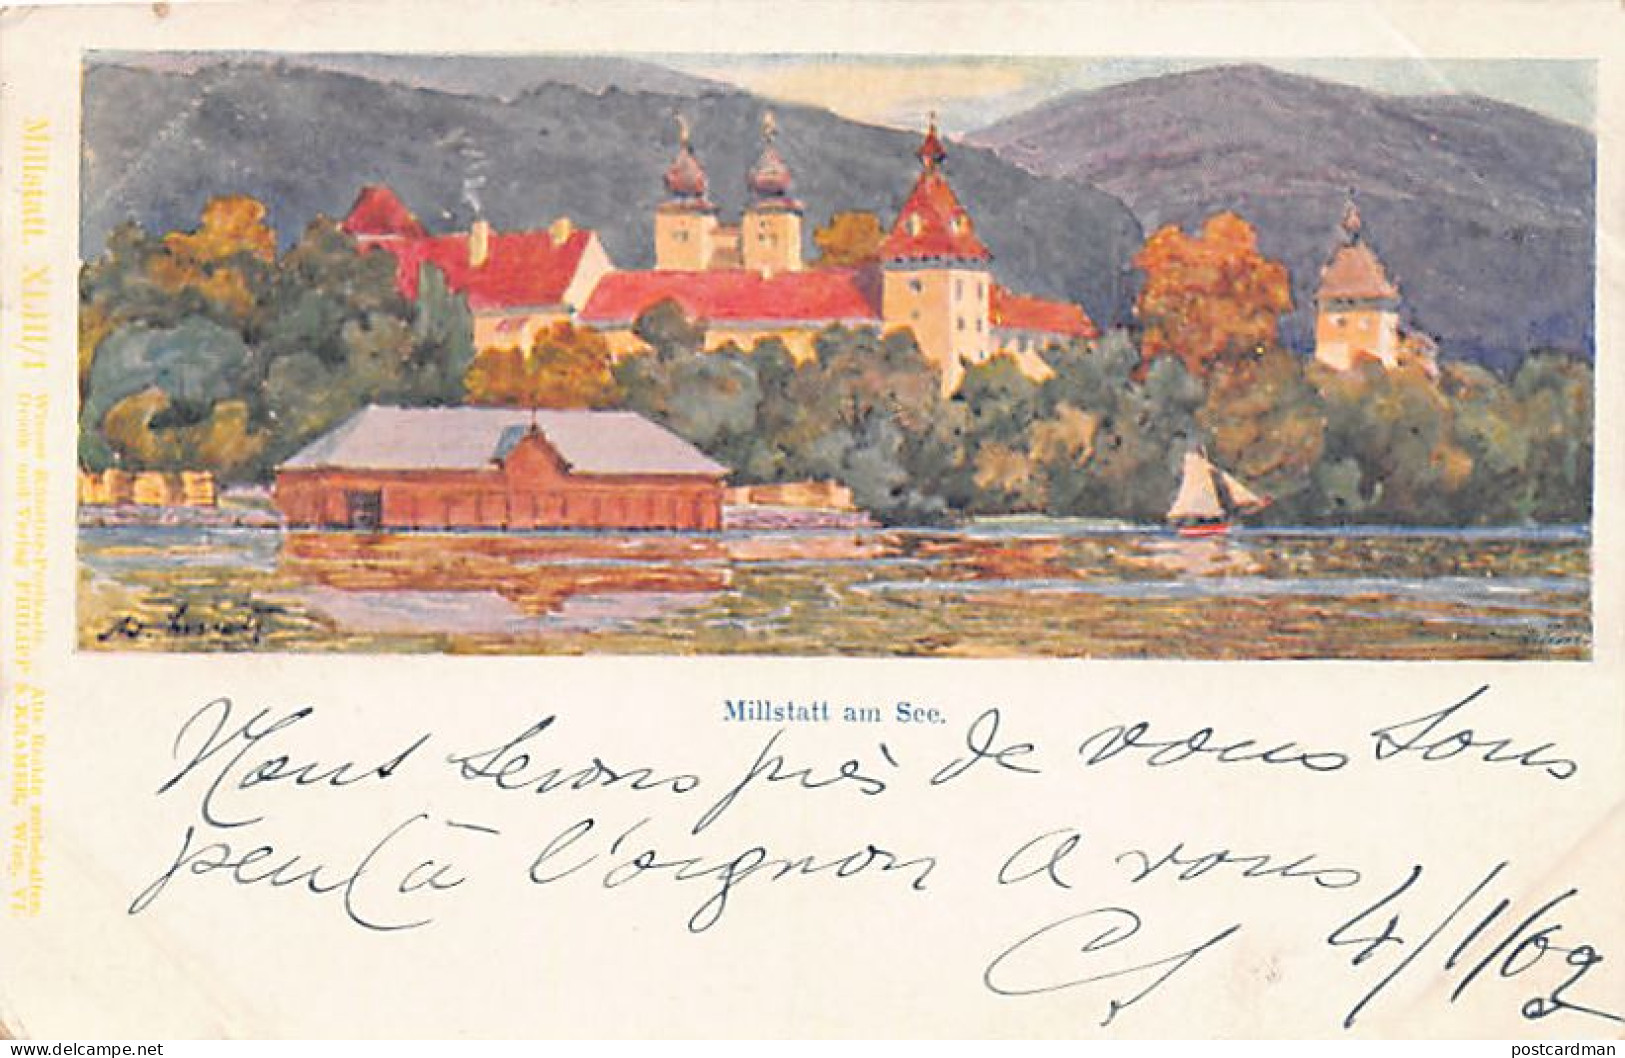 Millstatt. XLIII/1 Wiener Künstler-Postkarte. Alle Rechte vorbehalten.
Druck und Verlag PHILIPP & KRAMER, Wien, VI.
Millstatt am See.
Nous serons près de vous sous
peu (à l'oignon A vous
4/1/02
delcampe.net
postcardman